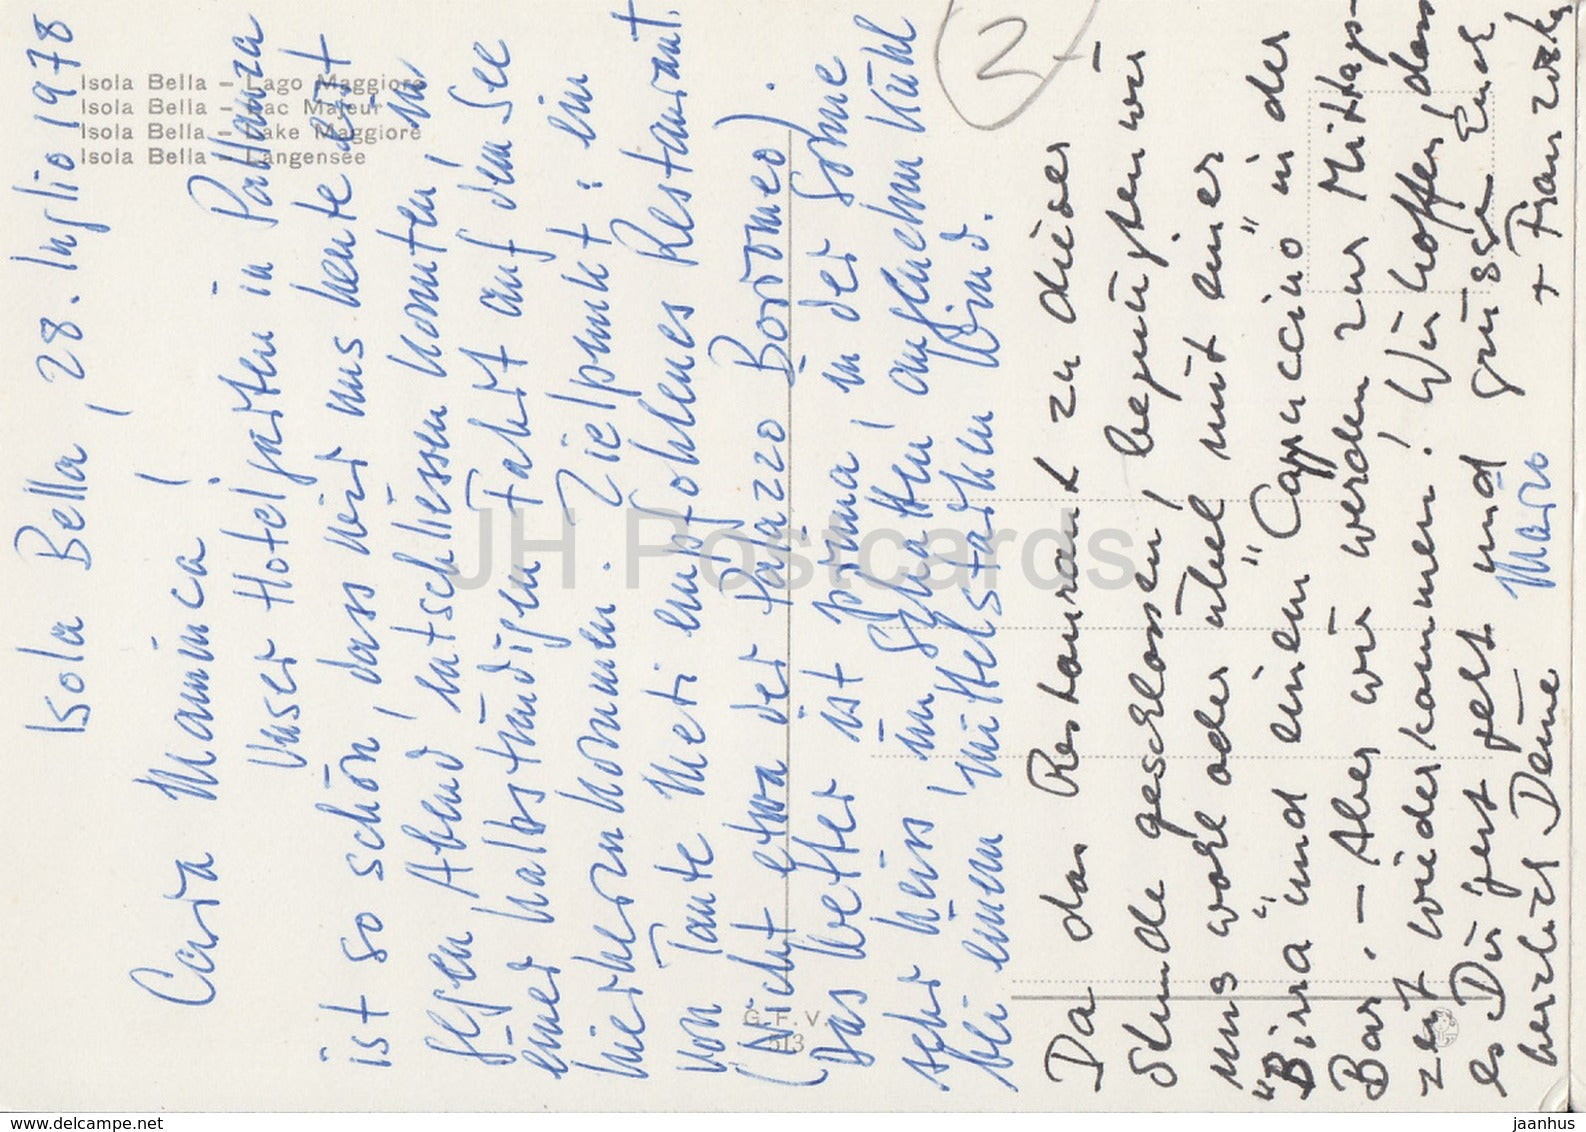 Isola Bella, 28. Luglio 1978
Cara Mamma!
Unser Hotelgarten in Pallanza
ist so schön, dass wir uns heute erst
gegen Abend entschliessen konnten, zu
einer halbstündigen Fahrt auf dem See
hierherzukommen. Zielpunkt: ein
von Tante Meti empfohlenes Restaurant.
(Nicht etwa der Palazzo Borromeo).
Das Wetter ist prima, in der Sonne
sehr heiss, im Schatten angenehm kühl
bei einem mittelstarken Wind.
Da das Restaurant zu dieser
Stunde geschlossen, begnügten wir
uns wohl oder übel mit einer
"Birra" und einem "Cappuccino" in der
Bar. – Aber wir werden zur Mittags-
zeit wiederkommen! Wir hoffen, dass
es Dir gut geht und grüssen Euch
herzlich Deine Mario + Franziska
2.-
Isola Bella - Lago Maggiore
Isola Bella - Lac Majeur
Isola Bella - Lake Maggiore
Isola Bella - Langensee
G.F.V.
513
JH Postcards
www.delcampe.net
jaanhus